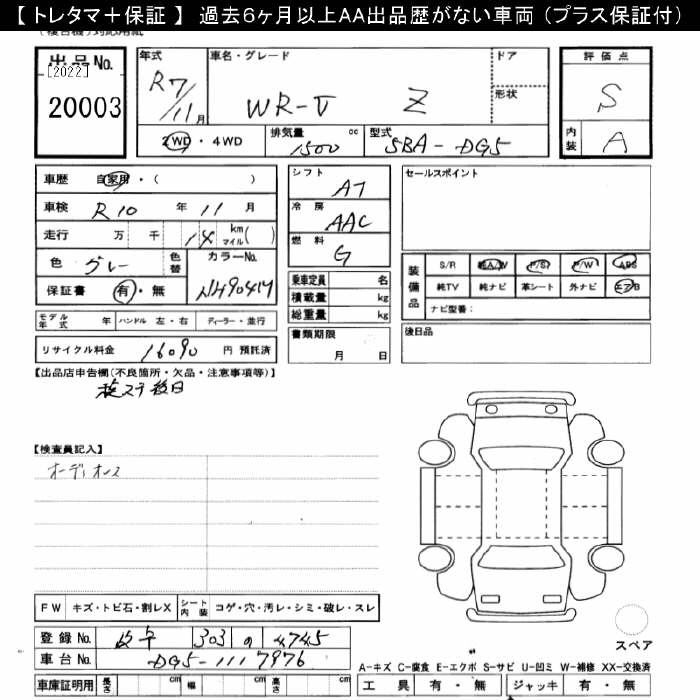 【 トレタマ＋保証 】 過去６ヶ月以上AA出品歴がない車両 (プラス保証付)
出品No.
[2022]
20003
年式
R7/11月
車名・グレード
WR-V Z
ドア
形状
評価点
S
内装 A
2WD・4WD
排気量 1500 cc
型式 5BA-DG5
車歴 自家用・( )
車検 R10年11月
走行 万 千 14 km マイル( )
色 グレー 色替
カラーNo. NH904M
保証書 有・無
シフト AT
冷房 AAC
燃料 G
セールスポイント
装備品
S/R 純A/W P/S P/W ABS
純TV 純ナビ 革シート 外ナビ エアB
ナビ型番：
乗車定員 名
積載量 kg
総重量 kg
モデル年式 年 ハンドル 左・右 ディーラー・並行
書類期限
月 日
後日品
リサイクル料金 16090 円 預託済
【出品店申告欄(不良箇所・欠品・注意事項等)】
検ステ後日
【検査員記入】
オーディオレス
FW キズ・トビ石・割レX シート内装 コゲ・穴・汚レ・シミ・破レ・スレ
登録No. 岐阜 303 の 4745
車台No. DG5-1117976
スペア
A-キズ C-腐食 E-エクボ S-サビ U-凹ミ W-補修 XX-交換済
車庫証明用 長さ cm 幅 cm 高さ cm
工具 有・無 ジャッキ 有・無